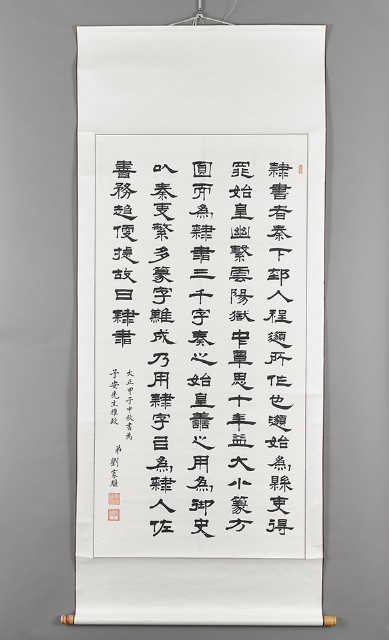 隸書者秦下邽人程邈所作也邈始為縣吏得
罪始皇幽繫雲陽獄中覃思十年益大小篆方
圓而為隸書三千字奏之始皇善之用為御史
以奏事繁多篆字難成乃用隸字㠯為隸人佐
書務趨便捷故曰隸書
大正甲子中秋書為
子安先生雅政
弟劉家